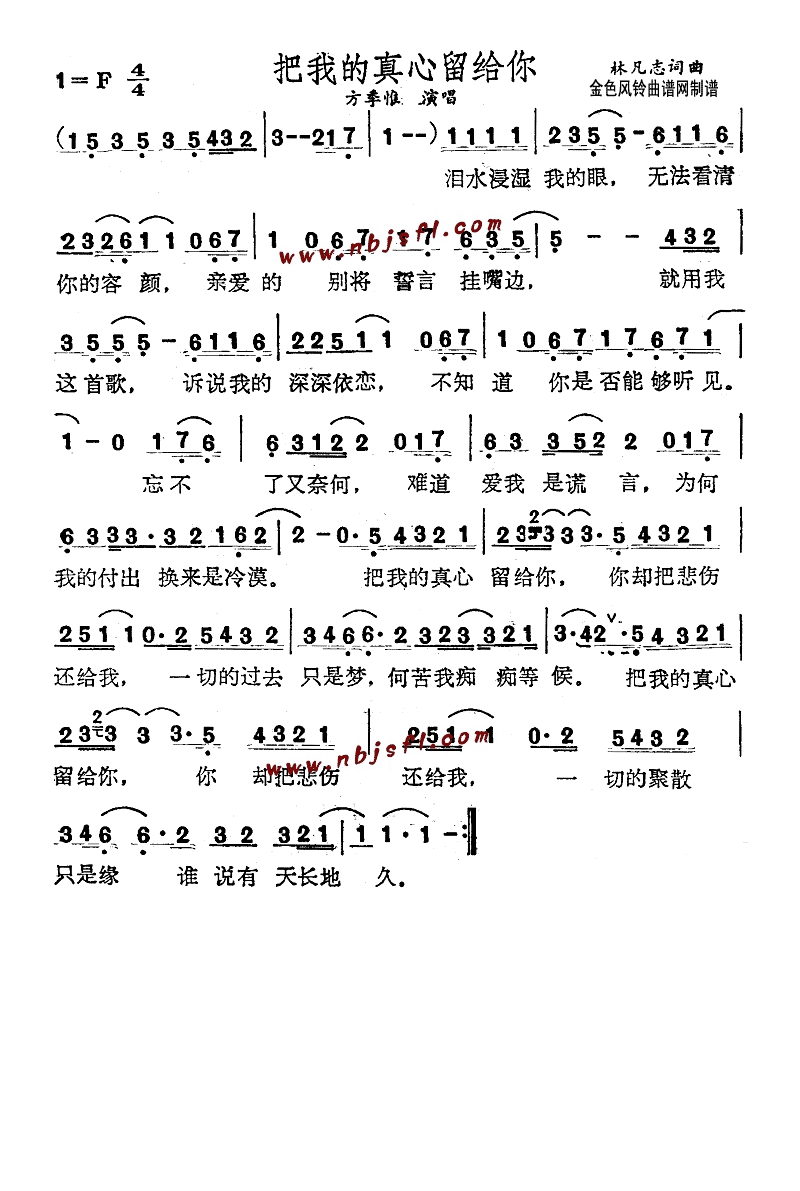 把我的真心留给你
1=F 4/4
林凡志词曲
金色风铃曲谱网制谱
方季惟 演唱
(1 5 3 5 3 5 4 3 2 | 3 - - 2 1 7 | 1 - - ) 1 1 1 1 | 2 3 5 5 - 6 1 1 6 |
泪水浸湿 我的眼， 无法看清
2 3 2 6 1 1 0 6 7 | 1 0 6 7 1 7 6 3 5 | 5 - - 4 3 2 |
www.nbjsfl.com
你的容 颜， 亲爱的 别将 誓言 挂嘴边， 就用我
3 5 5 5 - 6 1 1 6 | 2 2 5 1 1 0 6 7 | 1 0 6 7 1 7 6 7 1 |
这首歌， 诉说我的 深深依恋， 不知 道 你是否能够听见。
1 - 0 1 7 6 | 6 3 1 2 2 0 1 7 | 6 3 3 5 2 2 0 1 7 |
忘不 了又奈何， 难道 爱我 是谎 言， 为何
6 3 3 3 · 3 2 1 6 2 | 2 - 0 · 5 4 3 2 1 | 2 3 2 3 3 3 · 5 4 3 2 1 |
我的付出 换来是冷漠。 把我的真心 留给你， 你却把悲伤
2 5 1 1 0 · 2 5 4 3 2 | 3 4 6 6 · 2 3 2 3 3 2 1 | 3 · 4 2 ∨ · 5 4 3 2 1 |
还给我， 一切的过去 只是梦，何苦我痴 痴等 侯。 把我的真心
2 3 2 3 3 3 · 5 4 3 2 1 | 2 5 1 1 0 · 2 5 4 3 2
www.nbjsfl.com
留给你， 你 却把悲伤 还给我， 一 切的聚散
3 4 6 6 · 2 3 2 3 2 1 | 1 1 · 1 - :||
只是缘 谁 说有 天长地 久。